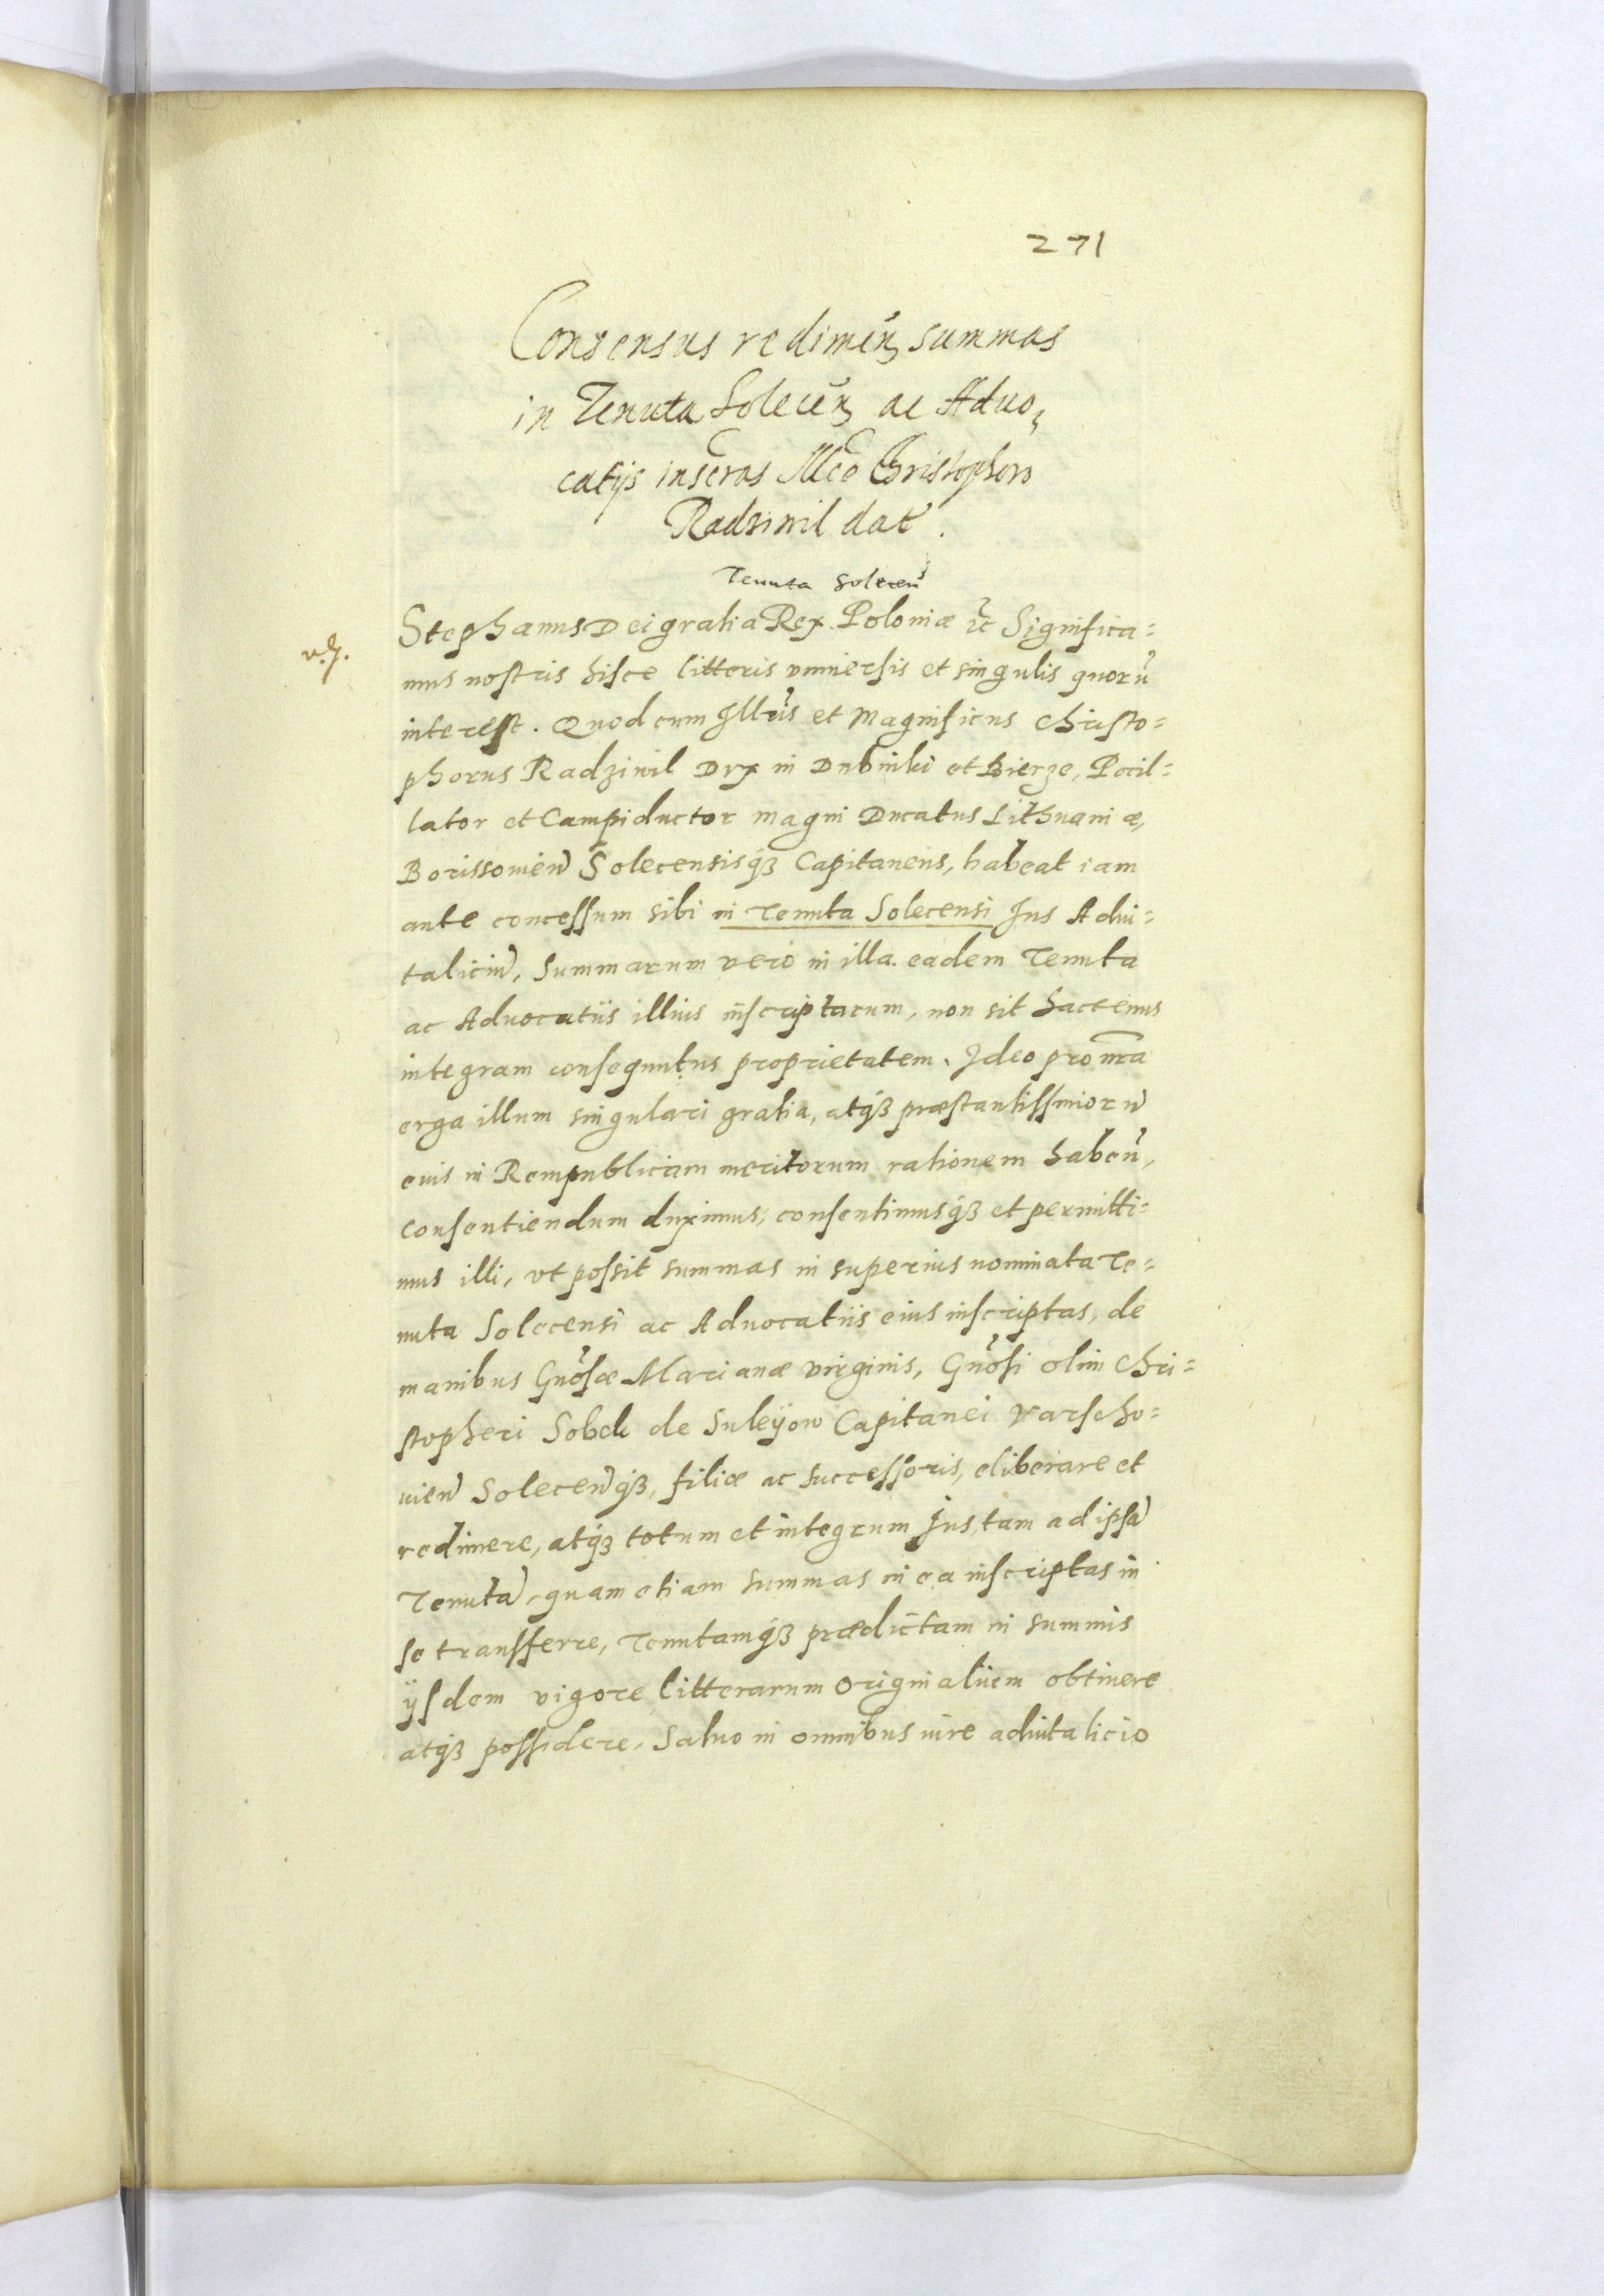 271
Consensus redimeñ summas
in Tenuta Soleceñ ac Aduo,
catijs inscras Mco Christophoro
Radziwil dat.
Tenuta Soleceñ
Stephanus Dei gratia Rex Poloniæ ꝛc Significa=
mus nostris hisce litteris vniuersis et singulis quorũ
interest. Quod cum Illrĩs et Magnificus Christo=
phorus Radziwil Dvx in Dubinki et Bierze, Pocil=
lator et Campiductor magni Ducatus Lithuaniæ,
Borissouieñ Solecensisq3 Capitaneus, habeat iam
ante concessum sibi in Tenuta Solecensi Jus Adui=
taliciũ, Summarum vero in illa eadem Tenuta
ac Aduocatiis illius inscriptarum, non sit hactenus
integram consequutus proprietatem. Ideo pro nr̃a
erga illum singulari gratia, atq3 præstantissimorũ
euis in Rempublicam meritorum rationem habeñ,
consentiendum duximus, consentimusq3 et permitti=
mus illi, vt possit summas in superius nominata Te=
nuta Solecensi ac Aduocatiis eius inscriptas, de
manibus Gnõsæ Marianæ virginis, Gnõsi olim Chri=
stopheri Sobek de Suleÿow Capitanei Varscho=
uieñ Soleceñq3, filiæ ac successoris, eliberare et
redimere, atq3 totum et integrum Jus, tam ad ipsã
Tenutã, quam etiam summas in ea inscriptas in
se transferre, Tenutamq3 prædictam in summis
ÿsdem vigore litterarum originalium obtinere
atq3 possidere, Saluo in omnibus iure aduitalicio